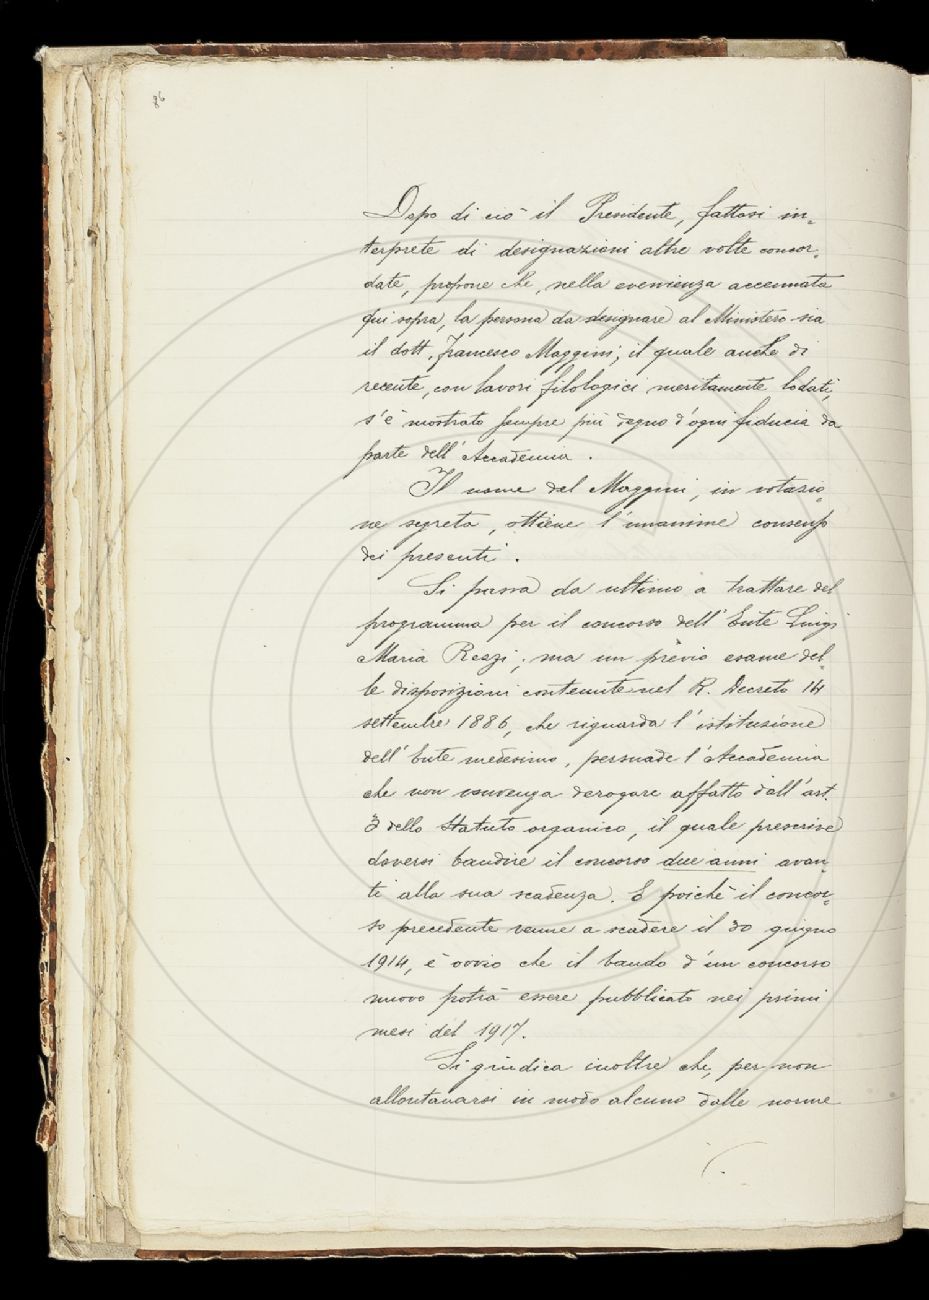 86
Dopo di ciò il Presidente, fattosi in-
terprete di designazioni altre volte concor-
date, propone che, nella evenienza accennata
qui sopra, la persona da designare al Ministero sia
il dott. Francesco Maggini, il quale anche di
recente, con lavori filologici meritamente lodati,
s'è mostrato sempre più degno d'ogni fiducia da
parte dell'Accademia.
Il nome del Maggini, in votazio-
ne segreta, ottiene l'unanime consenso
dei presenti.
Si passa da ultimo a trattare del
programma per il concorso dell'Ente Luigi
Maria Rezzi; ma un prèvio esame del-
le disposizioni contenute nel R. Decreto 14
settembre 1886, che riguarda l'istituzione
dell'Ente medesimo, persuade l'Accademia
che non convenga derogare affatto dall'art.
3 dello Statuto organico, il quale prescrive
doversi bandire il concorso due anni avan-
ti alla sua scadenza. E poichè il concor-
so precedente venne a scadere il 30 giugno
1914, è ovvio che il bando d'un concorso
nuovo potrà essere pubblicato nei primi
mesi del 1917.
Si giudica inoltre che, per non
allontanarsi in modo alcuno dalle norme